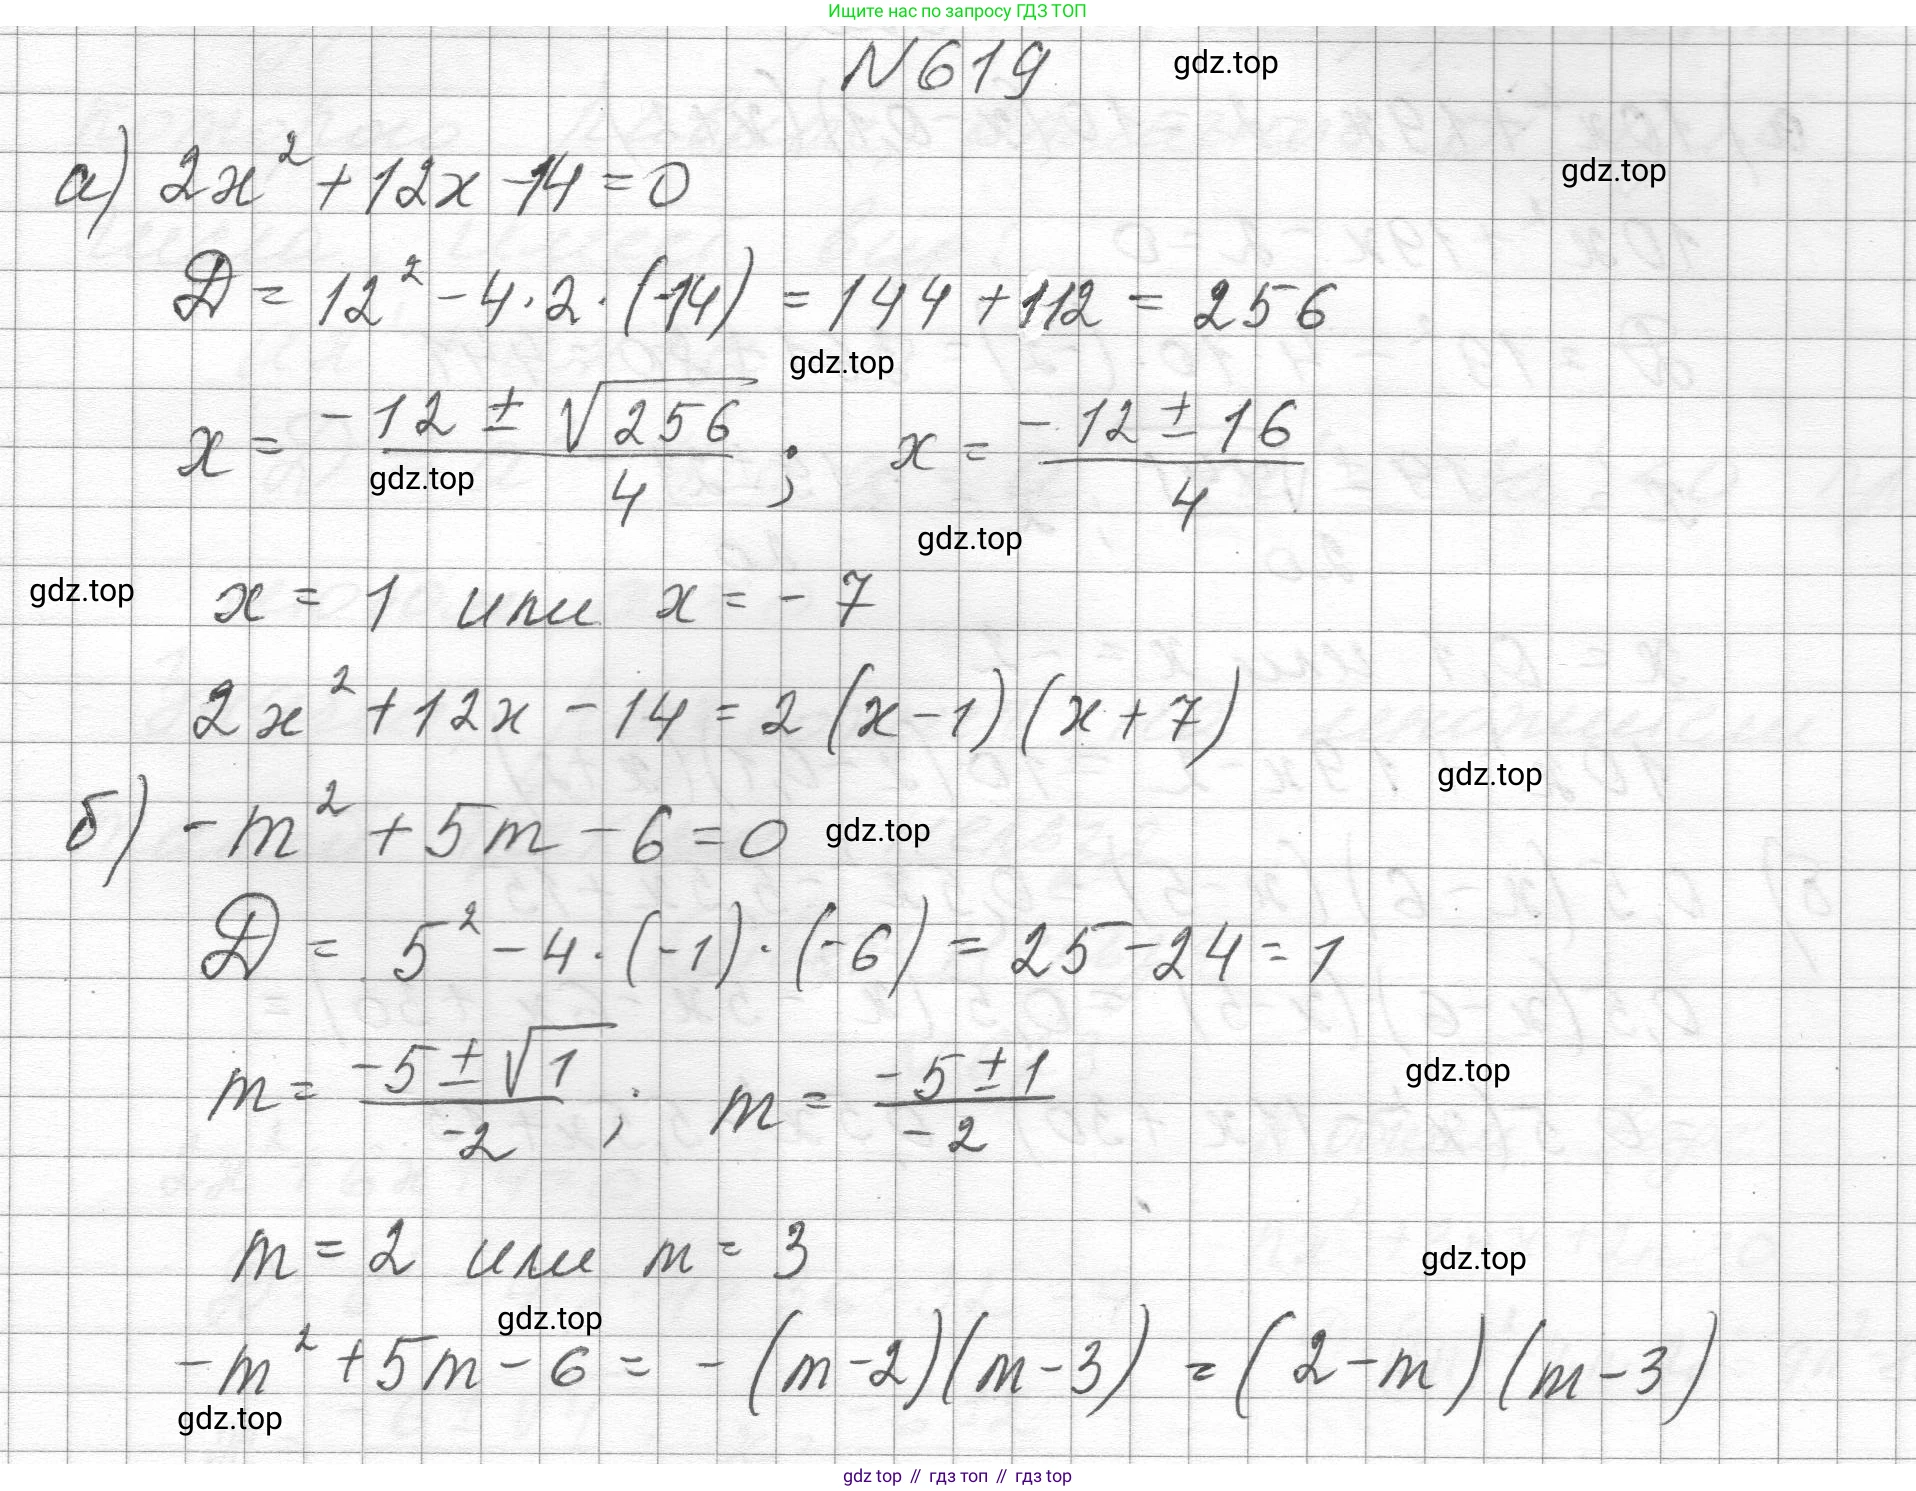 Ищите нас по запросу ГДЗ ТОП
N 619
gdz.top
а) 2x² + 12x - 14 = 0
gdz.top
D = 12² - 4 · 2 · (-14) = 144 + 112 = 256
gdz.top
x = (-12 ± √256)/4 ; x = (-12 ± 16)/4
gdz.top
gdz.top
gdz.top
x = 1 или x = -7
2x² + 12x - 14 = 2 (x - 1) (x + 7)
gdz.top
б) -m² + 5m - 6 = 0
gdz.top
D = 5² - 4 · (-1) · (-6) = 25 - 24 = 1
m = (-5 ± √1)/-2 ; m = (-5 ± 1)/-2
gdz.top
m = 2 или m = 3
gdz.top
gdz.top
-m² + 5m - 6 = - (m - 2) (m - 3) = (2 - m) (m - 3)
gdz.top
gdz top // гдз топ // гдз top